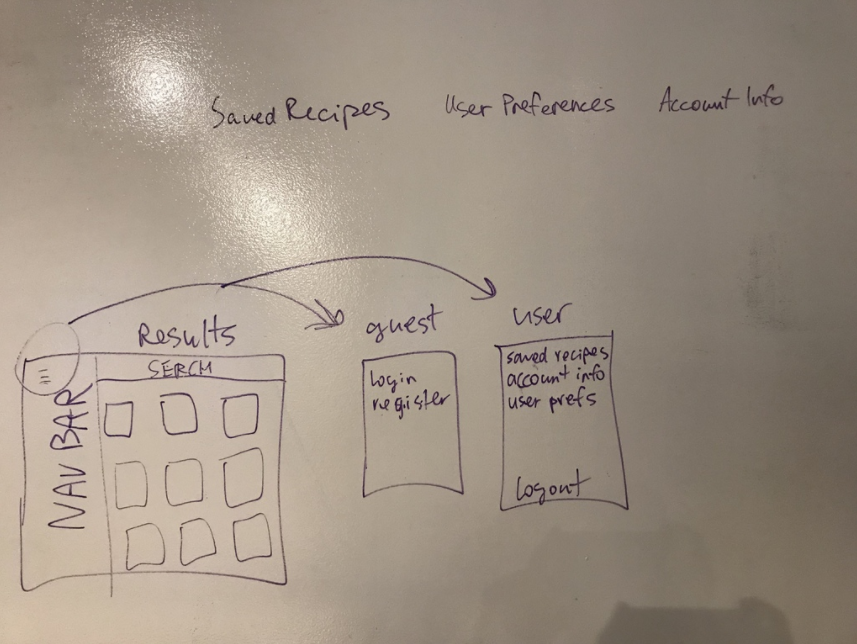 Saved Recipes
User Preferences
Account Info
Results
SERCH
NAV BAR
guest
login
register
user
saved recipes
account info
user prefs
logout